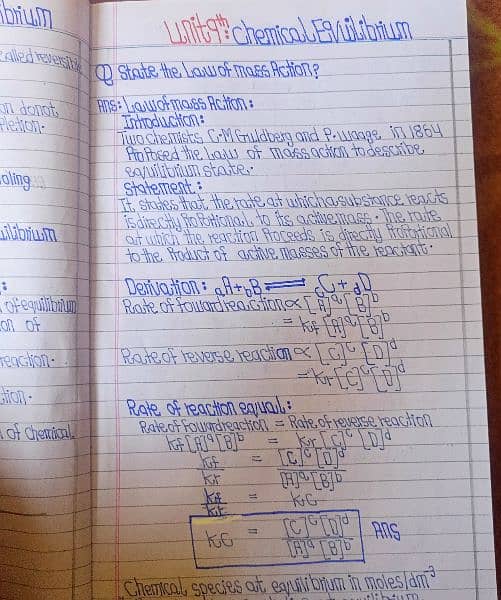 ibrium
called reversib
on donot
pletion.
oling
uilibrium
:
of equilibrium
on of
reaction.
tion.
of chemical
Unit 9th: Chemical Equilibrium
Q State the Law of mass Action?
Ans: Law of mass Action:
Introduction:
Two chemists C.M Guldberg and P. waage in 1864
Proposed the Law of mass action to describe
equilibrium state.
Statement:
It states that the rate at which a substance reacts
is directly Proportional to its active mass. The rate
at which the reaction Proceeds is directly Proportional
to the Product of active masses of the reactant.
Derivation: aA + bB ⇌ cC + dD
Rate of foward reaction ∝ [A]^a [B]^b
= Kf [A]^a [B]^b
Rate of reverse reaction ∝ [C]^c [D]^d
= Kr [C]^c [D]^d
Rate of reaction equal:
Rate of foward reaction = Rate of reverse reaction
Kf [A]^a [B]^b = Kr [C]^c [D]^d
Kf/Kr = [C]^c [D]^d / [A]^a [B]^b
Kf/Kr = Kc
Kc = [C]^c [D]^d / [A]^a [B]^b Ans
Chemical species at equilibrium in moles/dm^3
equilibrium